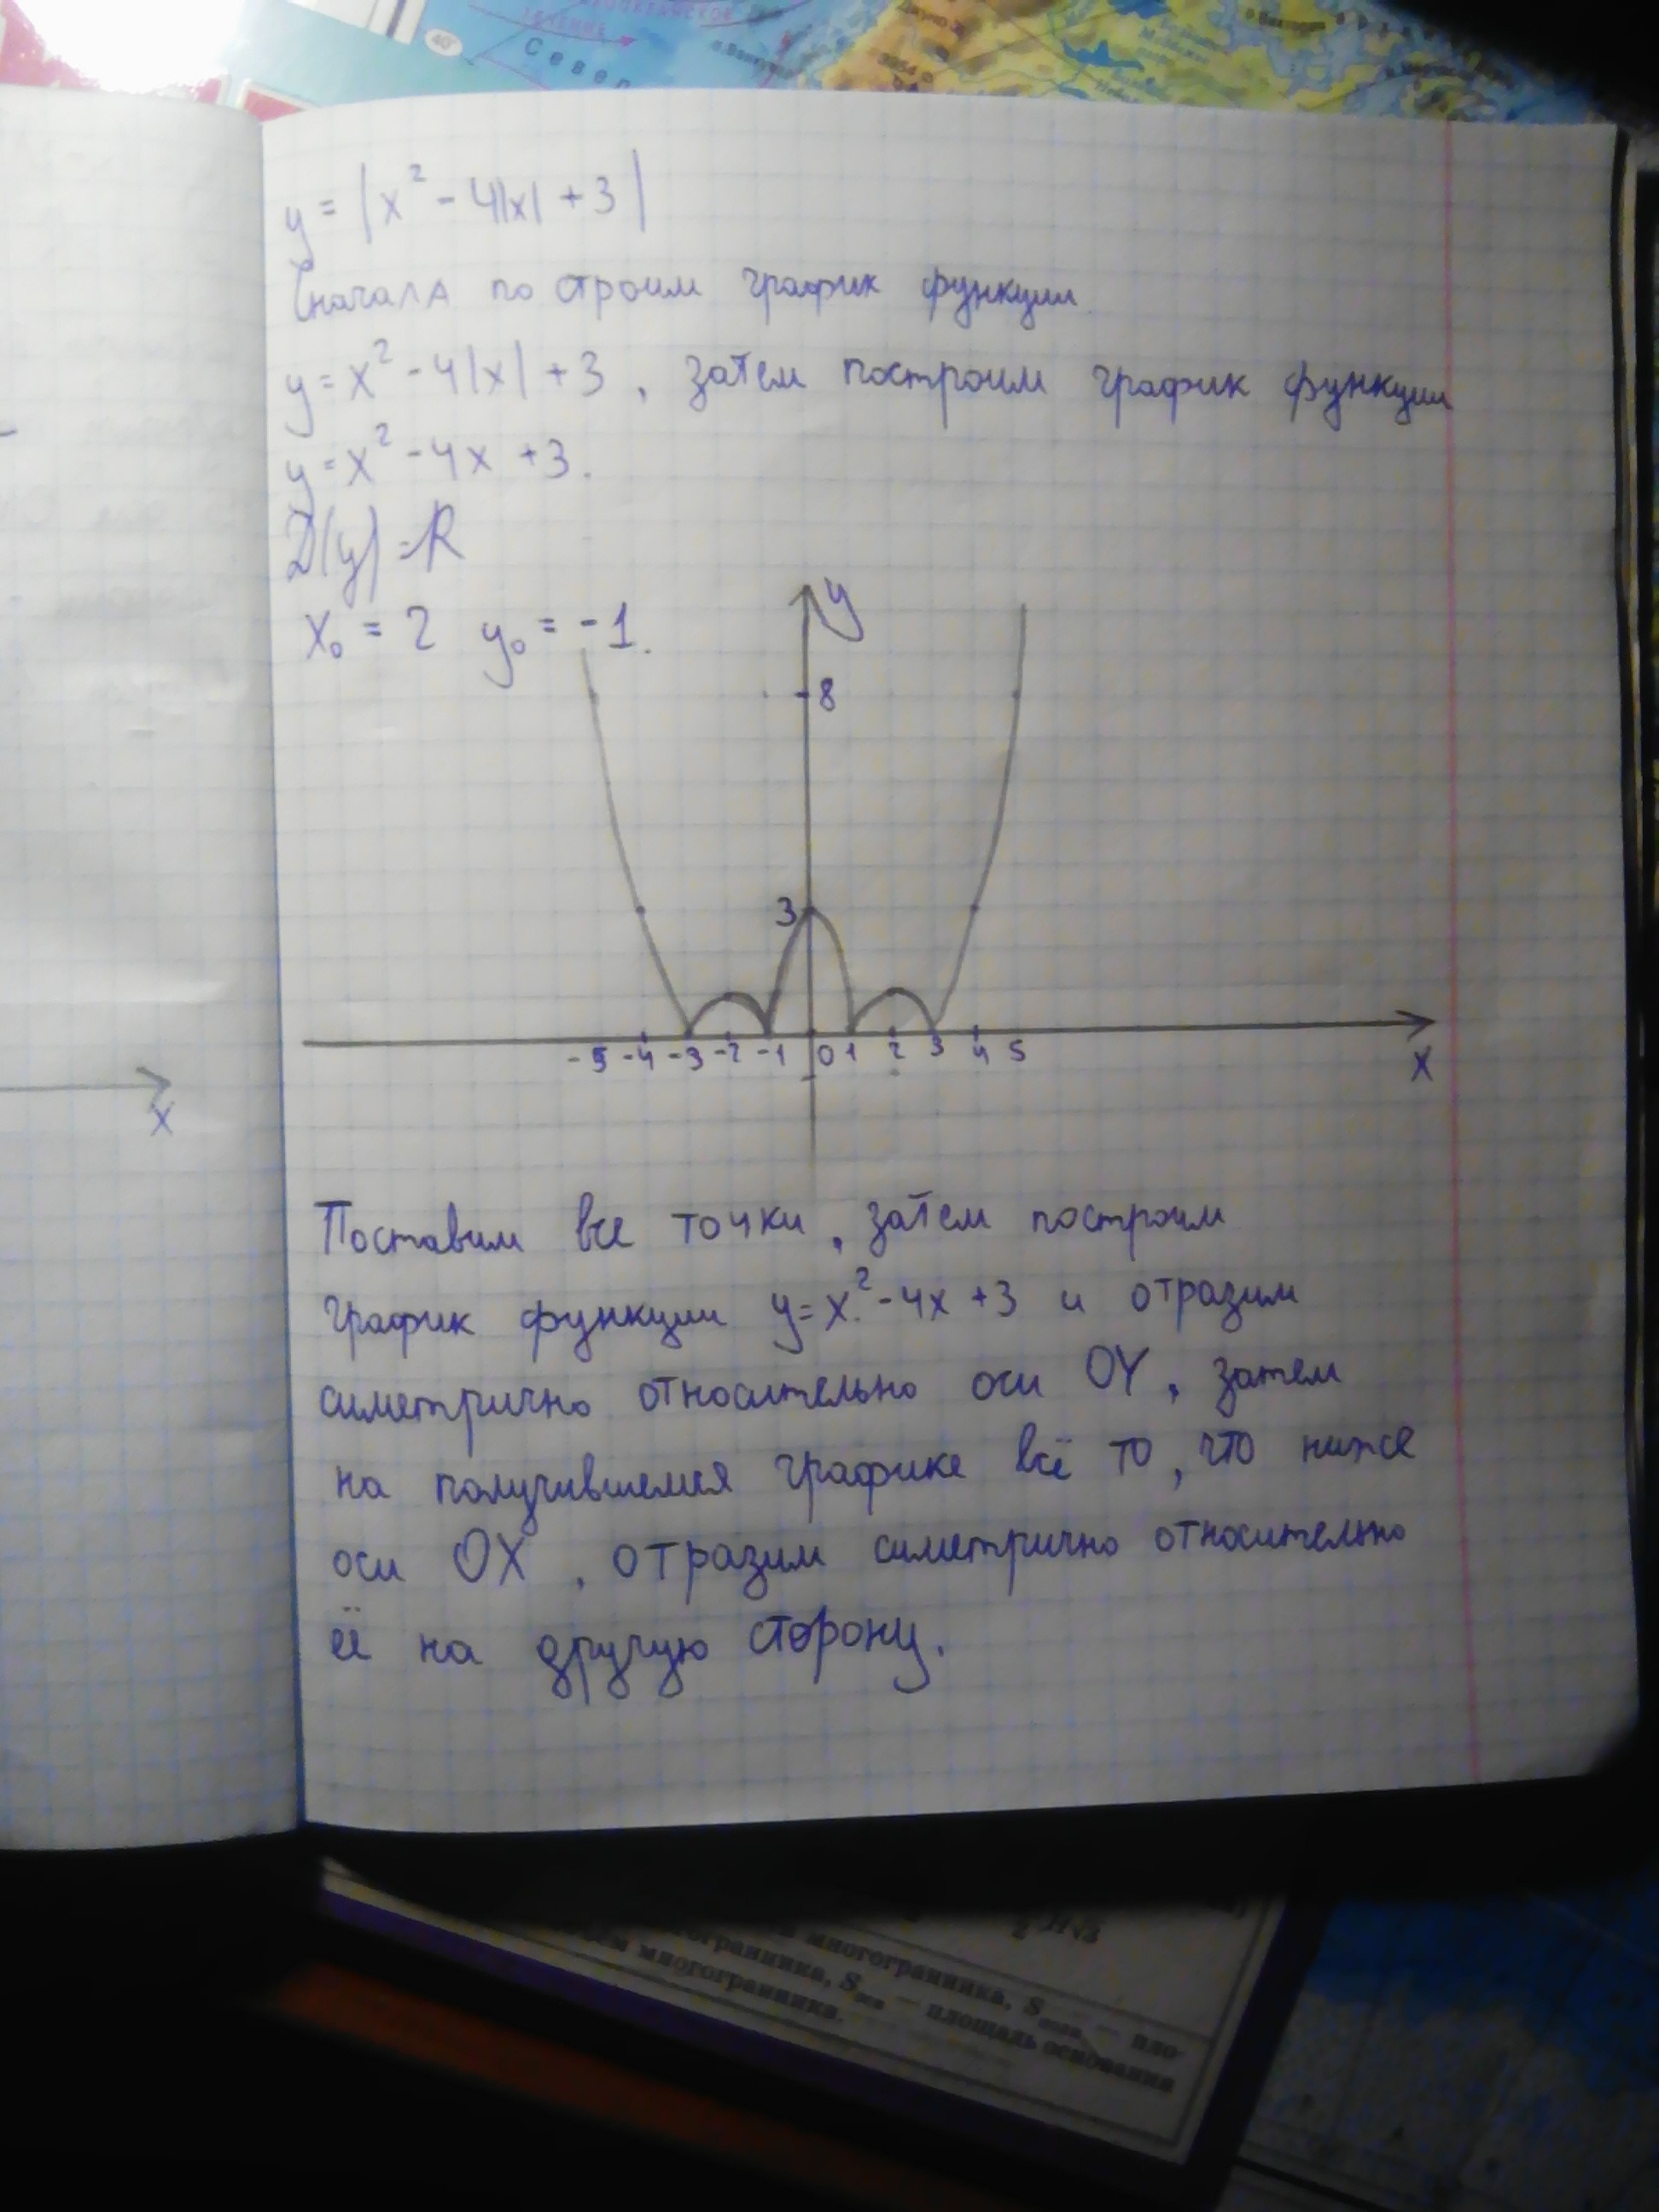 40°
Север
y = |x² - 4|x| + 3|
Сначала построим график функции
y = x² - 4|x| + 3, затем построим график функции
y = x² - 4x + 3.
D(y) = R
x₀ = 2 y₀ = -1.
y
8
3
-5 -4 -3 -2 -1 0 1 2 3 4 5
x
x
Поставим все точки, затем построим
график функции y = x² - 4x + 3 и отразим
симетрично относительно оси OY, затем
на получившемся графике всё то, что ниже
оси OX, отразим симетрично относительно
её на другую сторону.
многогранника, S — пло-
многогранника, S — площадь основания
многогранника.